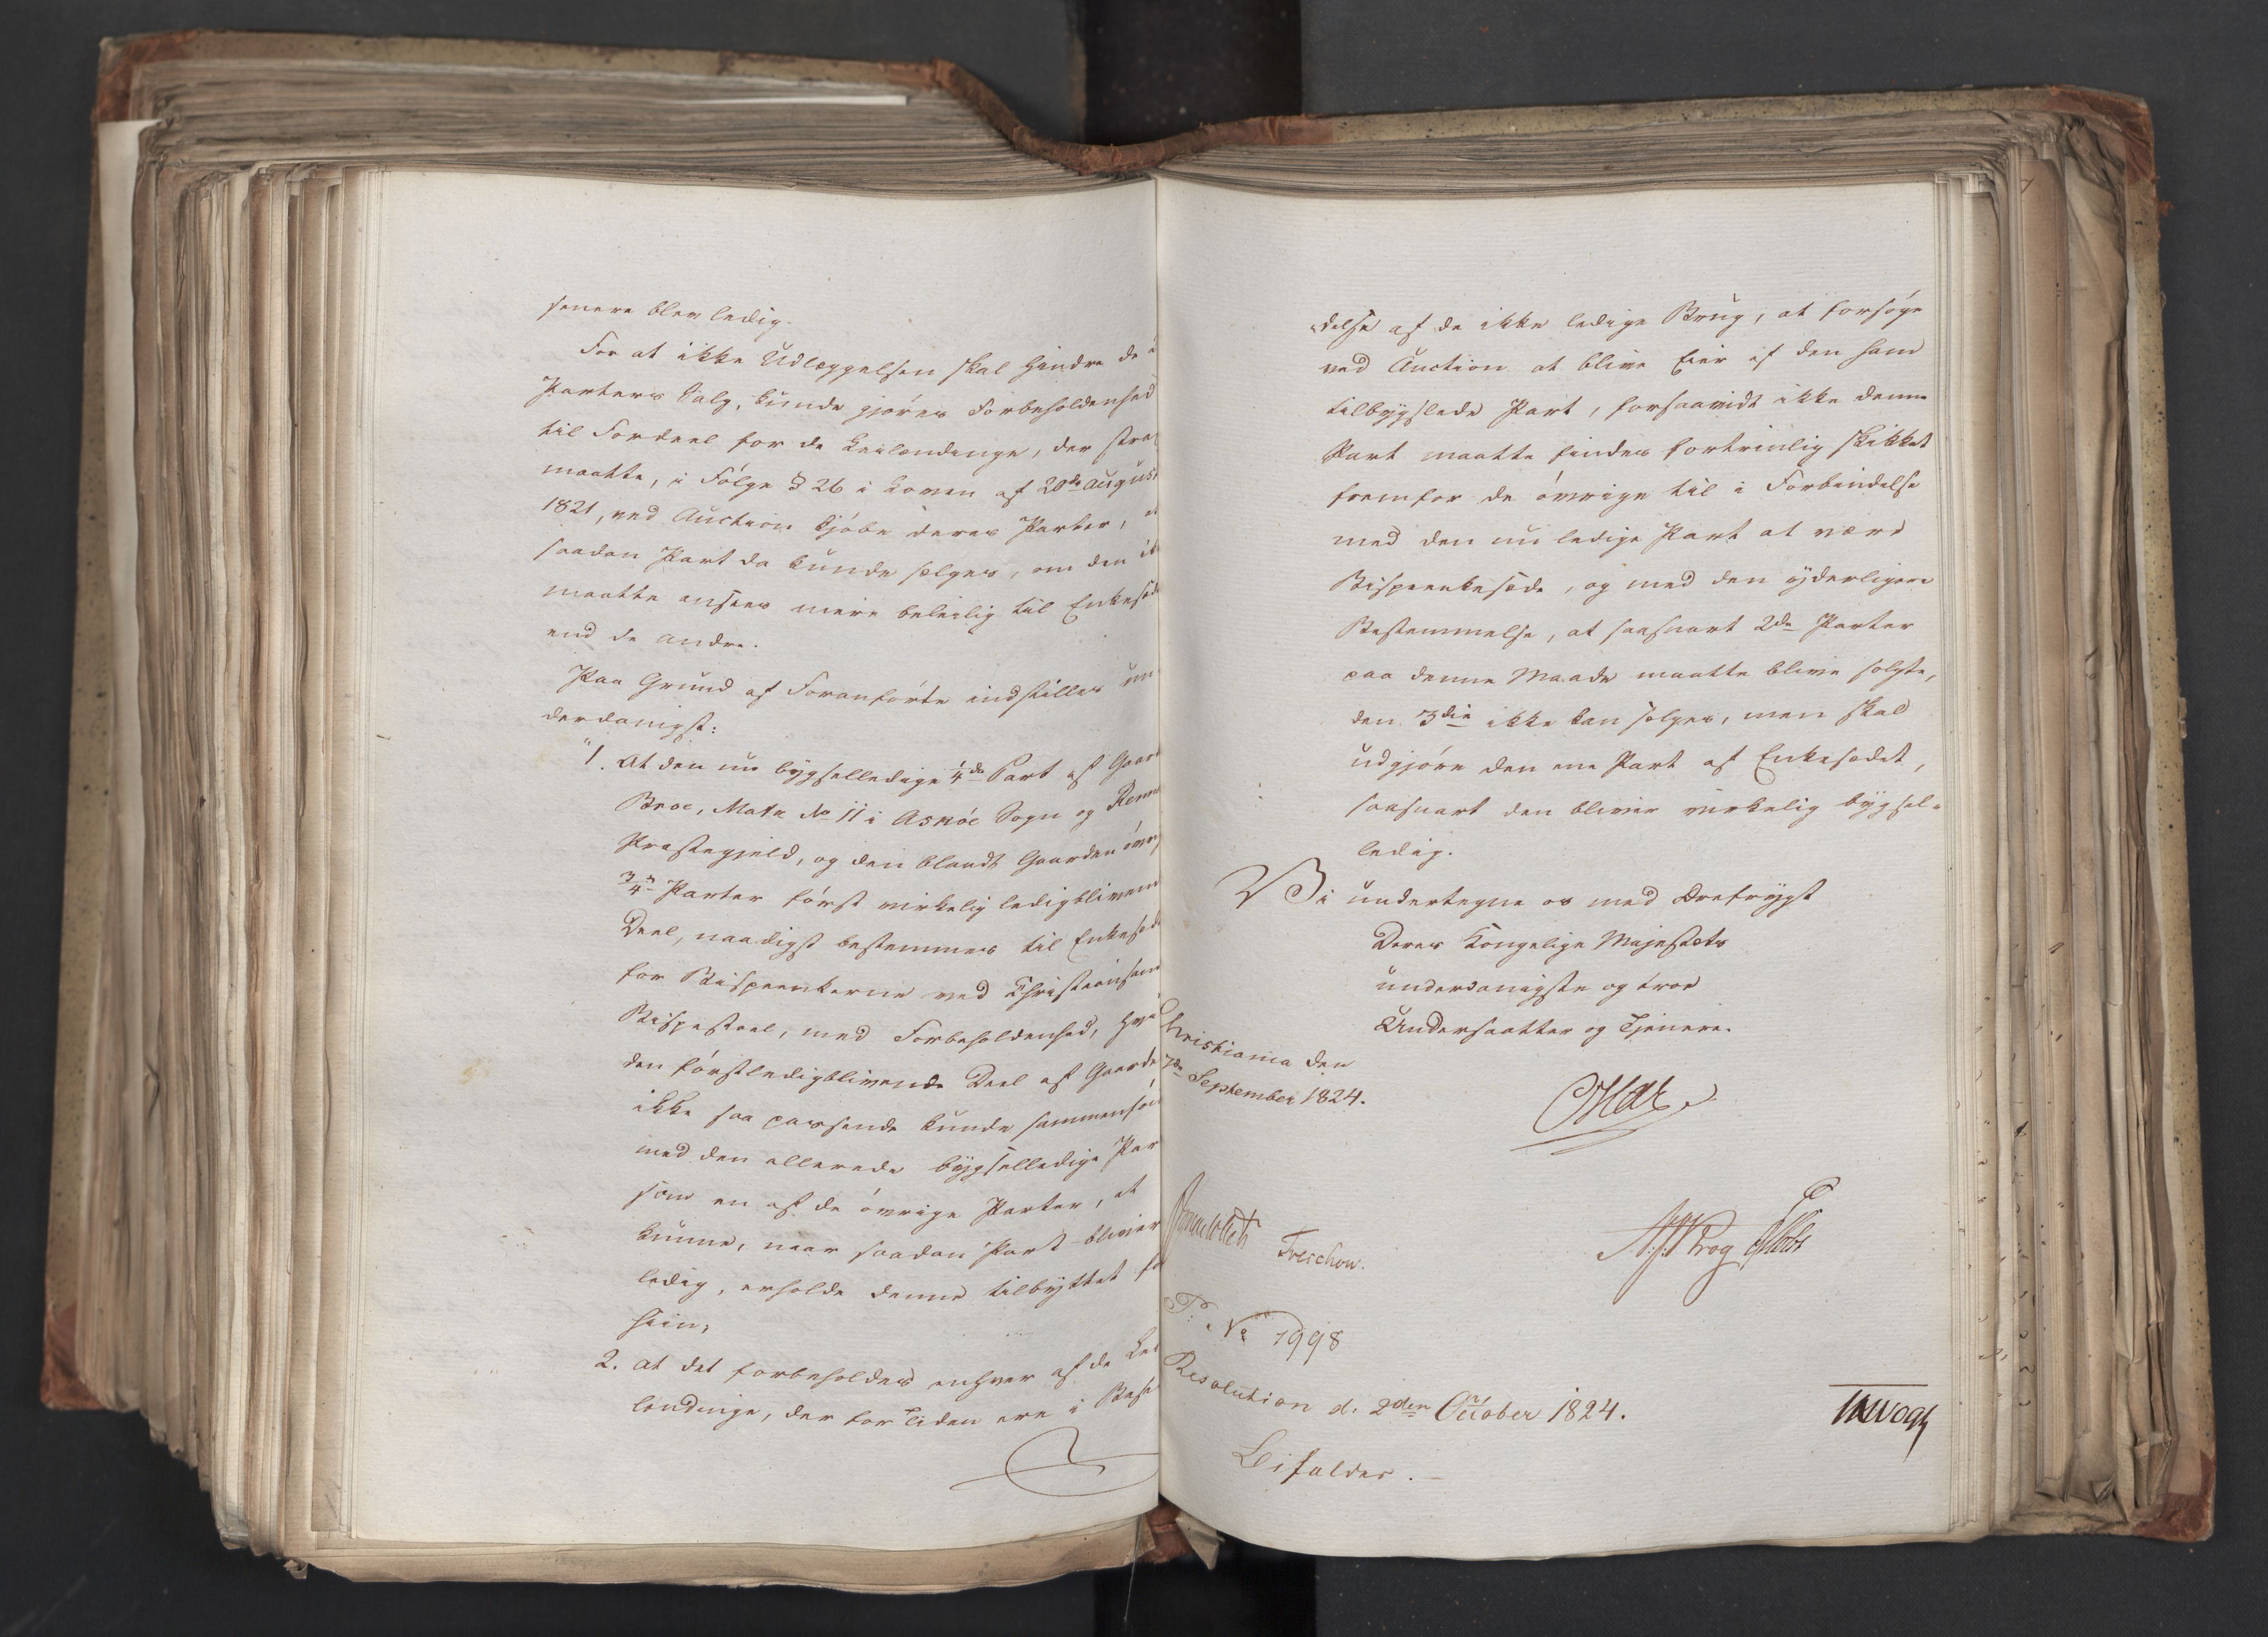 senere blev ledig.
For at ikke Udlæggelsen skal hindre de
Parters Salg, kunde gjøres Forbeholdenhed
til Fordeel for de Leilændinge, der stra
maatte, i Følge § 26 i Loven af 20de August
1821, ved Auction kjøbe deres Parter, a
saadan Part da kunde sælges, om den ik
maatte ansees mere beleilig til Enkesæde
end de andre.
Paa Grund af Foranførte indstilles un
derdanigst:
"1. At den nu bygselledige 1/4de Part af Gaard
Broe, Matr No 11 i Askøe Sogn og Renne
Præstegjeld, og den blandt Gaarden øvri
3/4de Parter først virkelig ledigblivende
Deel, naadigst bestemmes til Enkesæde
for Bispeenkerne ved Christiansand
Bispestoel, med Forbeholdenhed, hvi
den førstledigblivende Deel af Gaarden
ikke saa passende kunde sammenføi
med den allerede bygselledige Par
som en af de øvrige Parter, at
kunne, naar saadan Part bliver
ledig, erholde denne tilbyttet fo
hiin;
2. at det forbeholdes enhver af de Lei
lændinge, der for Tiden ere i Besi
delse af de ikke ledige Brug, at forsøge
ved Auction at blive Eier af den ham
tilbygslede Part, forsaavidt ikke denne
Part maatte findes fortrinlig skikket
fremfor de øvrige til i Forbindelse
med den nu ledige Part at være
Bispeenkesæde, og med den yderligere
Bestemmelse, at saasnart 2de Parter
paa denne Maade maatte blive solgte,
den 3die ikke kan sælges, men skal
udgjøre den ene Part af Enkesædet,
saasnart den bliver virkelig bygsel-
ledig.
Vi undertegne os med Ærefrygt
Deres Kongelige Majestæts
underdanigste og troe
Undersaatter og Tjenere.
Christiania den
7de September 1824.
Treschow.
Krog
P: No 1998
Resolution d. 2den October 1824.
Bifaldes.